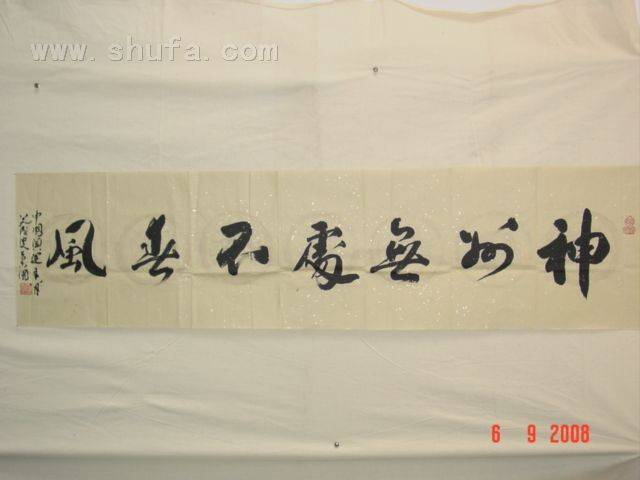 www.shufa.com
神州無處不春風
中國奧運年
6 9 2008